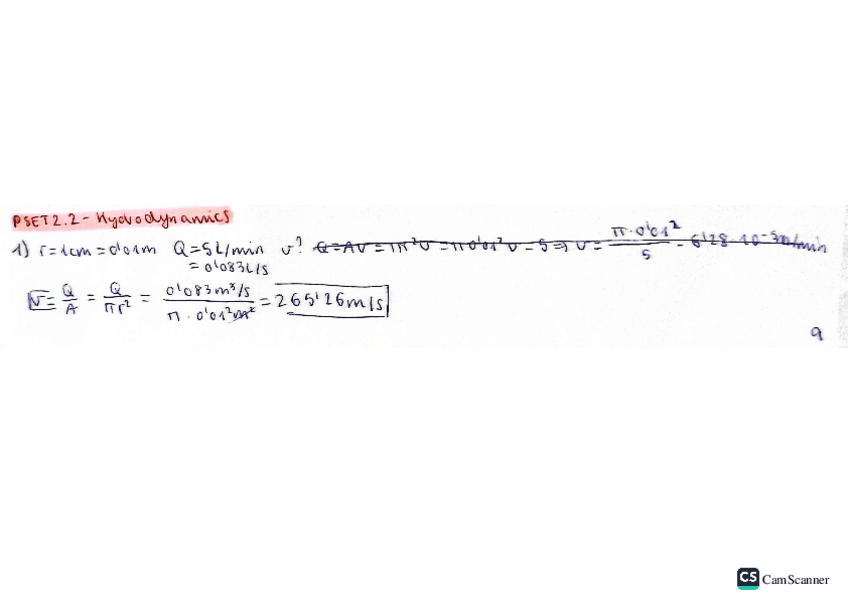 PSET2.2 - Hydrodynamics
1) r=1cm=0'01m Q=5L/min v? Q=AV=πr²v=π0'01²v=5⇒v= π·0'01² / 5 = 6'28·10⁻⁵m/min
=0'083L/s
v= Q/A = Q/πr² = 0'083m³/s / π·0'01²m² = 265'26m/s
9
CS CamScanner